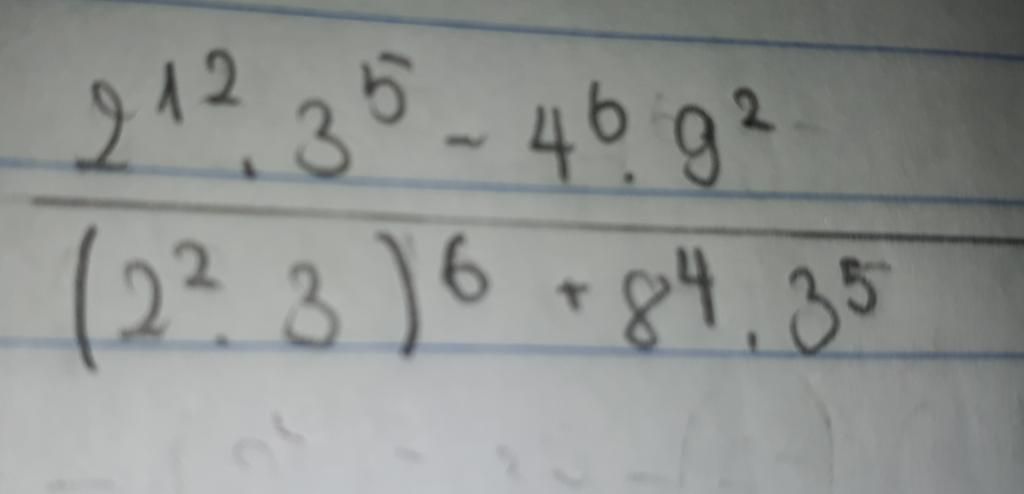 2¹² . 3⁵ - 4⁶ . 9²
(2² . 3)⁶ + 8⁴ . 3⁵